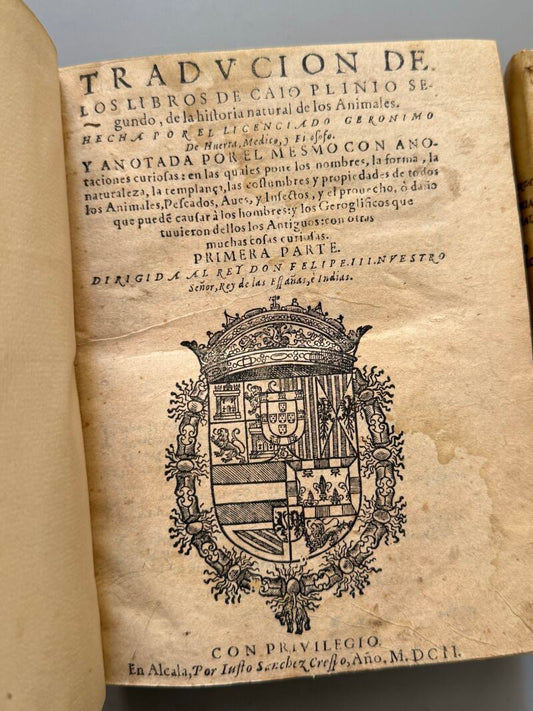 TRADVCION DE
LOS LIBROS DE CAIO PLINIO SE-
gundo, de la historia natural de los Animales.
HECHA POR EL LICENCIADO GERONIMO
De Huerta, Medico, y Filosofo.
Y ANOTADA POR EL MESMO CON ANO-
taciones curiosas: en las quales pone los nombres, la forma, la
naturaleza, la templança, las costumbres y propiedades de todos
los Animales, Pescados, Aues, y Insectos, y el prouecho, ò daño
que puedẽ causar à los hombres: y los Geroglificos que
tuuieron dellos los Antiguos: con otras
muchas cosas curiosas.
PRIMERA PARTE.
DIRIGIDA AL REY DON FELIPE. III. NVESTRO
Señor, Rey de las Españas, è Indias.
CON PRIVILEGIO.
En Alcala, Por Iusto Sanchez Crespo, Año, M. DCII.